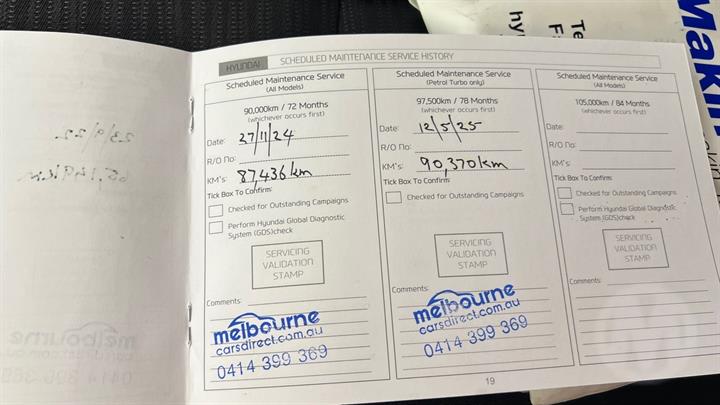 HYUNDAI SCHEDULED MAINTENANCE SERVICE HISTORY
Scheduled Maintenance Service
(All Models)
90,000km / 72 Months
(whichever occurs first)
Date: 27/11/24
R/O No:
KM's: 87,436km
Tick Box To Confirm:
Checked for Outstanding Campaigns
Perform Hyundai Global Diagnostic
System (GDS)check
SERVICING
VALIDATION
STAMP
Comments:
melbourne
carsdirect.com.au
0414 399 369
Scheduled Maintenance Service
(Petrol Turbo only)
97,500km / 78 Months
(whichever occurs first)
Date: 12/5/25
R/O No:
KM's: 90,370km
Tick Box To Confirm:
Checked for Outstanding Campaigns
SERVICING
VALIDATION
STAMP
Comments:
melbourne
carsdirect.com.au
0414 399 369
Scheduled Maintenance Service
(All Models)
105,000km / 84 Months
(whichever occurs first)
Date:
R/O No:
KM's:
Tick Box To Confirm:
Checked for Outstanding Campaigns
Perform Hyundai Global Diagnostic
System (GDS)check
SERVICING
VALIDATION
STAMP
Comments:
19